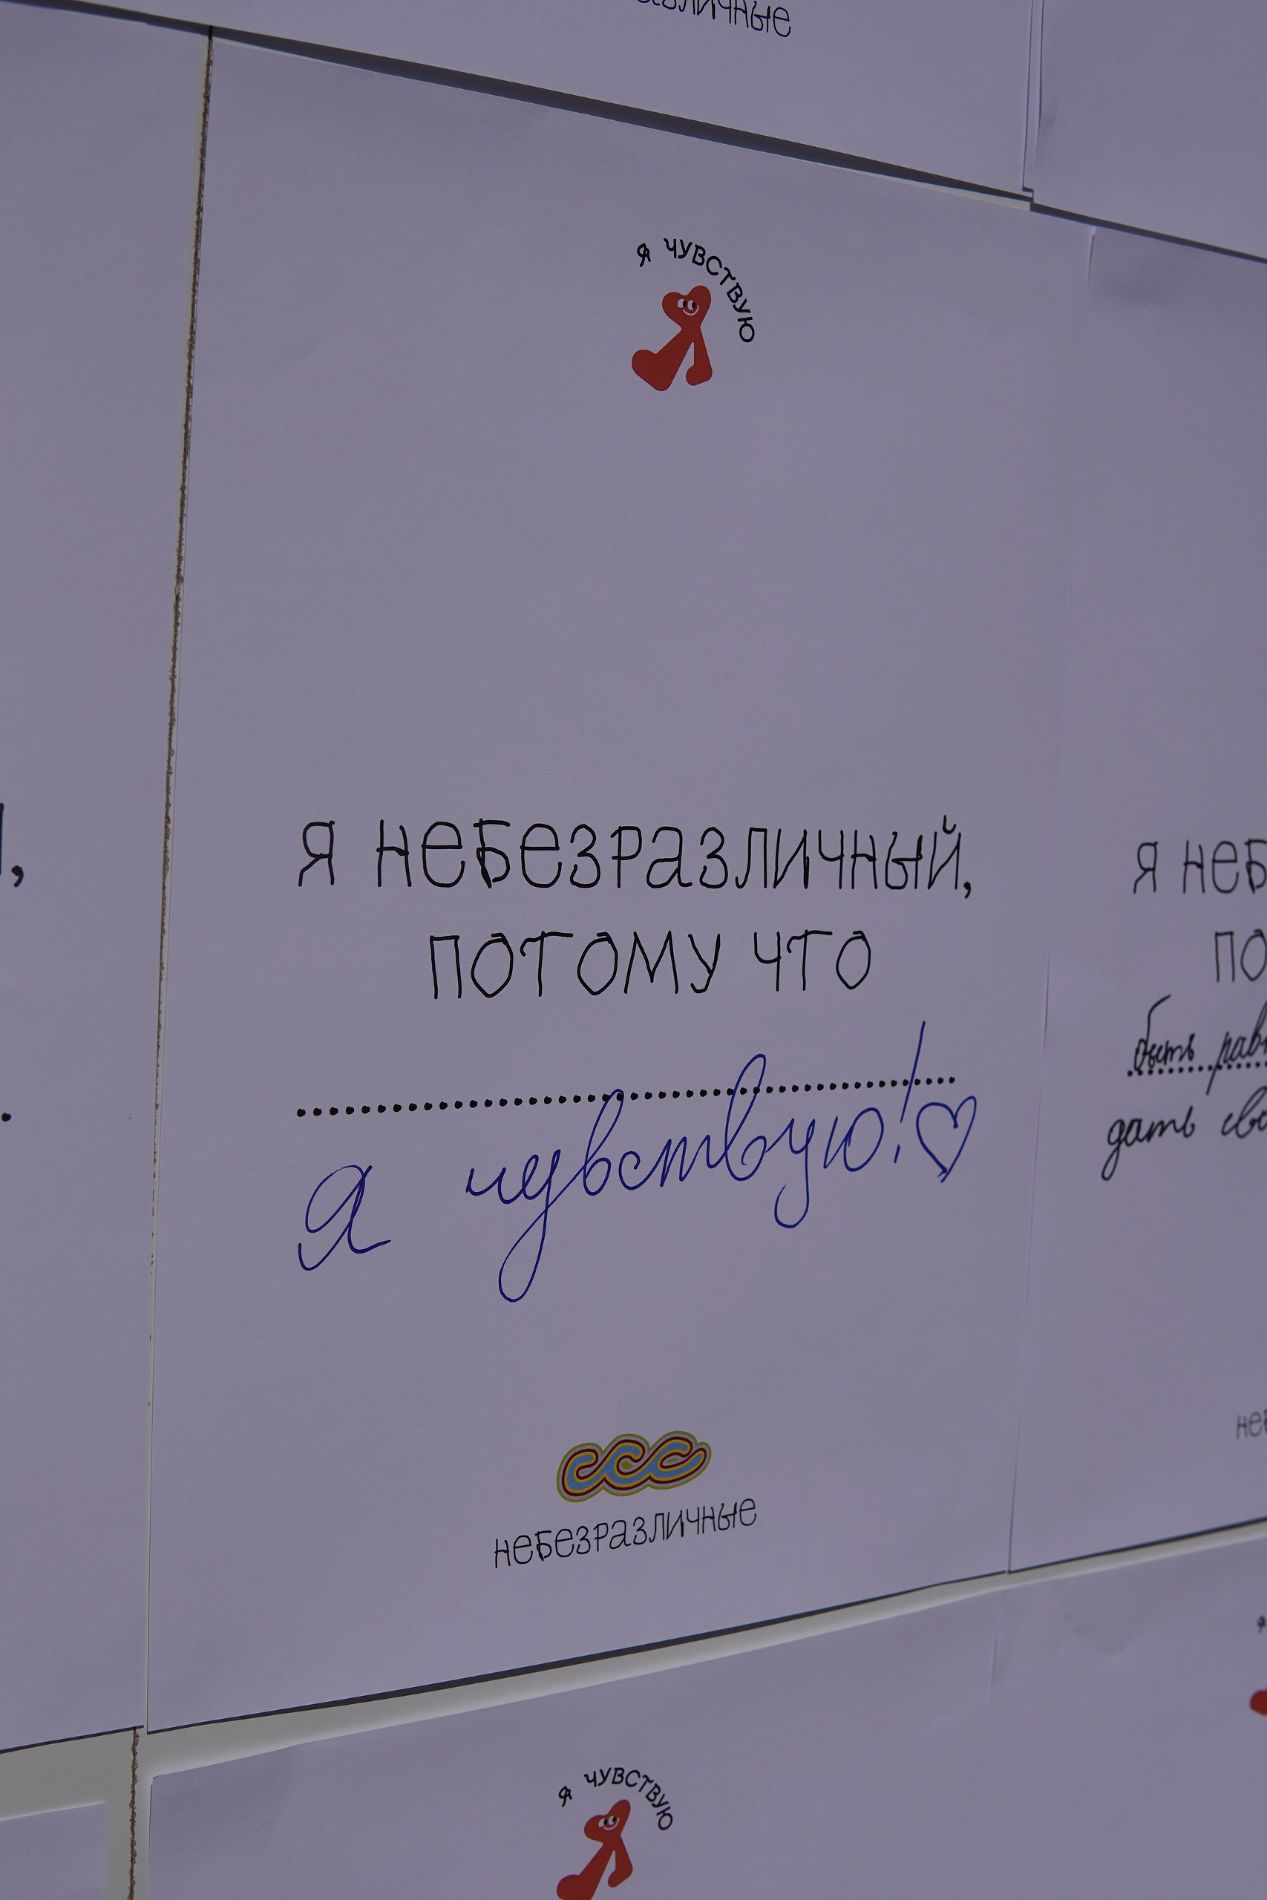 Я ЧУВСТВУЮ
Я НЕБЕЗРАЗЛИЧНЫЙ,
ПОТОМУ ЧТО
я чувствую!♡
ссс
НЕБЕЗРАЗЛИЧНЫЕ
Я НЕБ
ПО
быть рав
дать сво
неб
Я ЧУВСТВУЮ